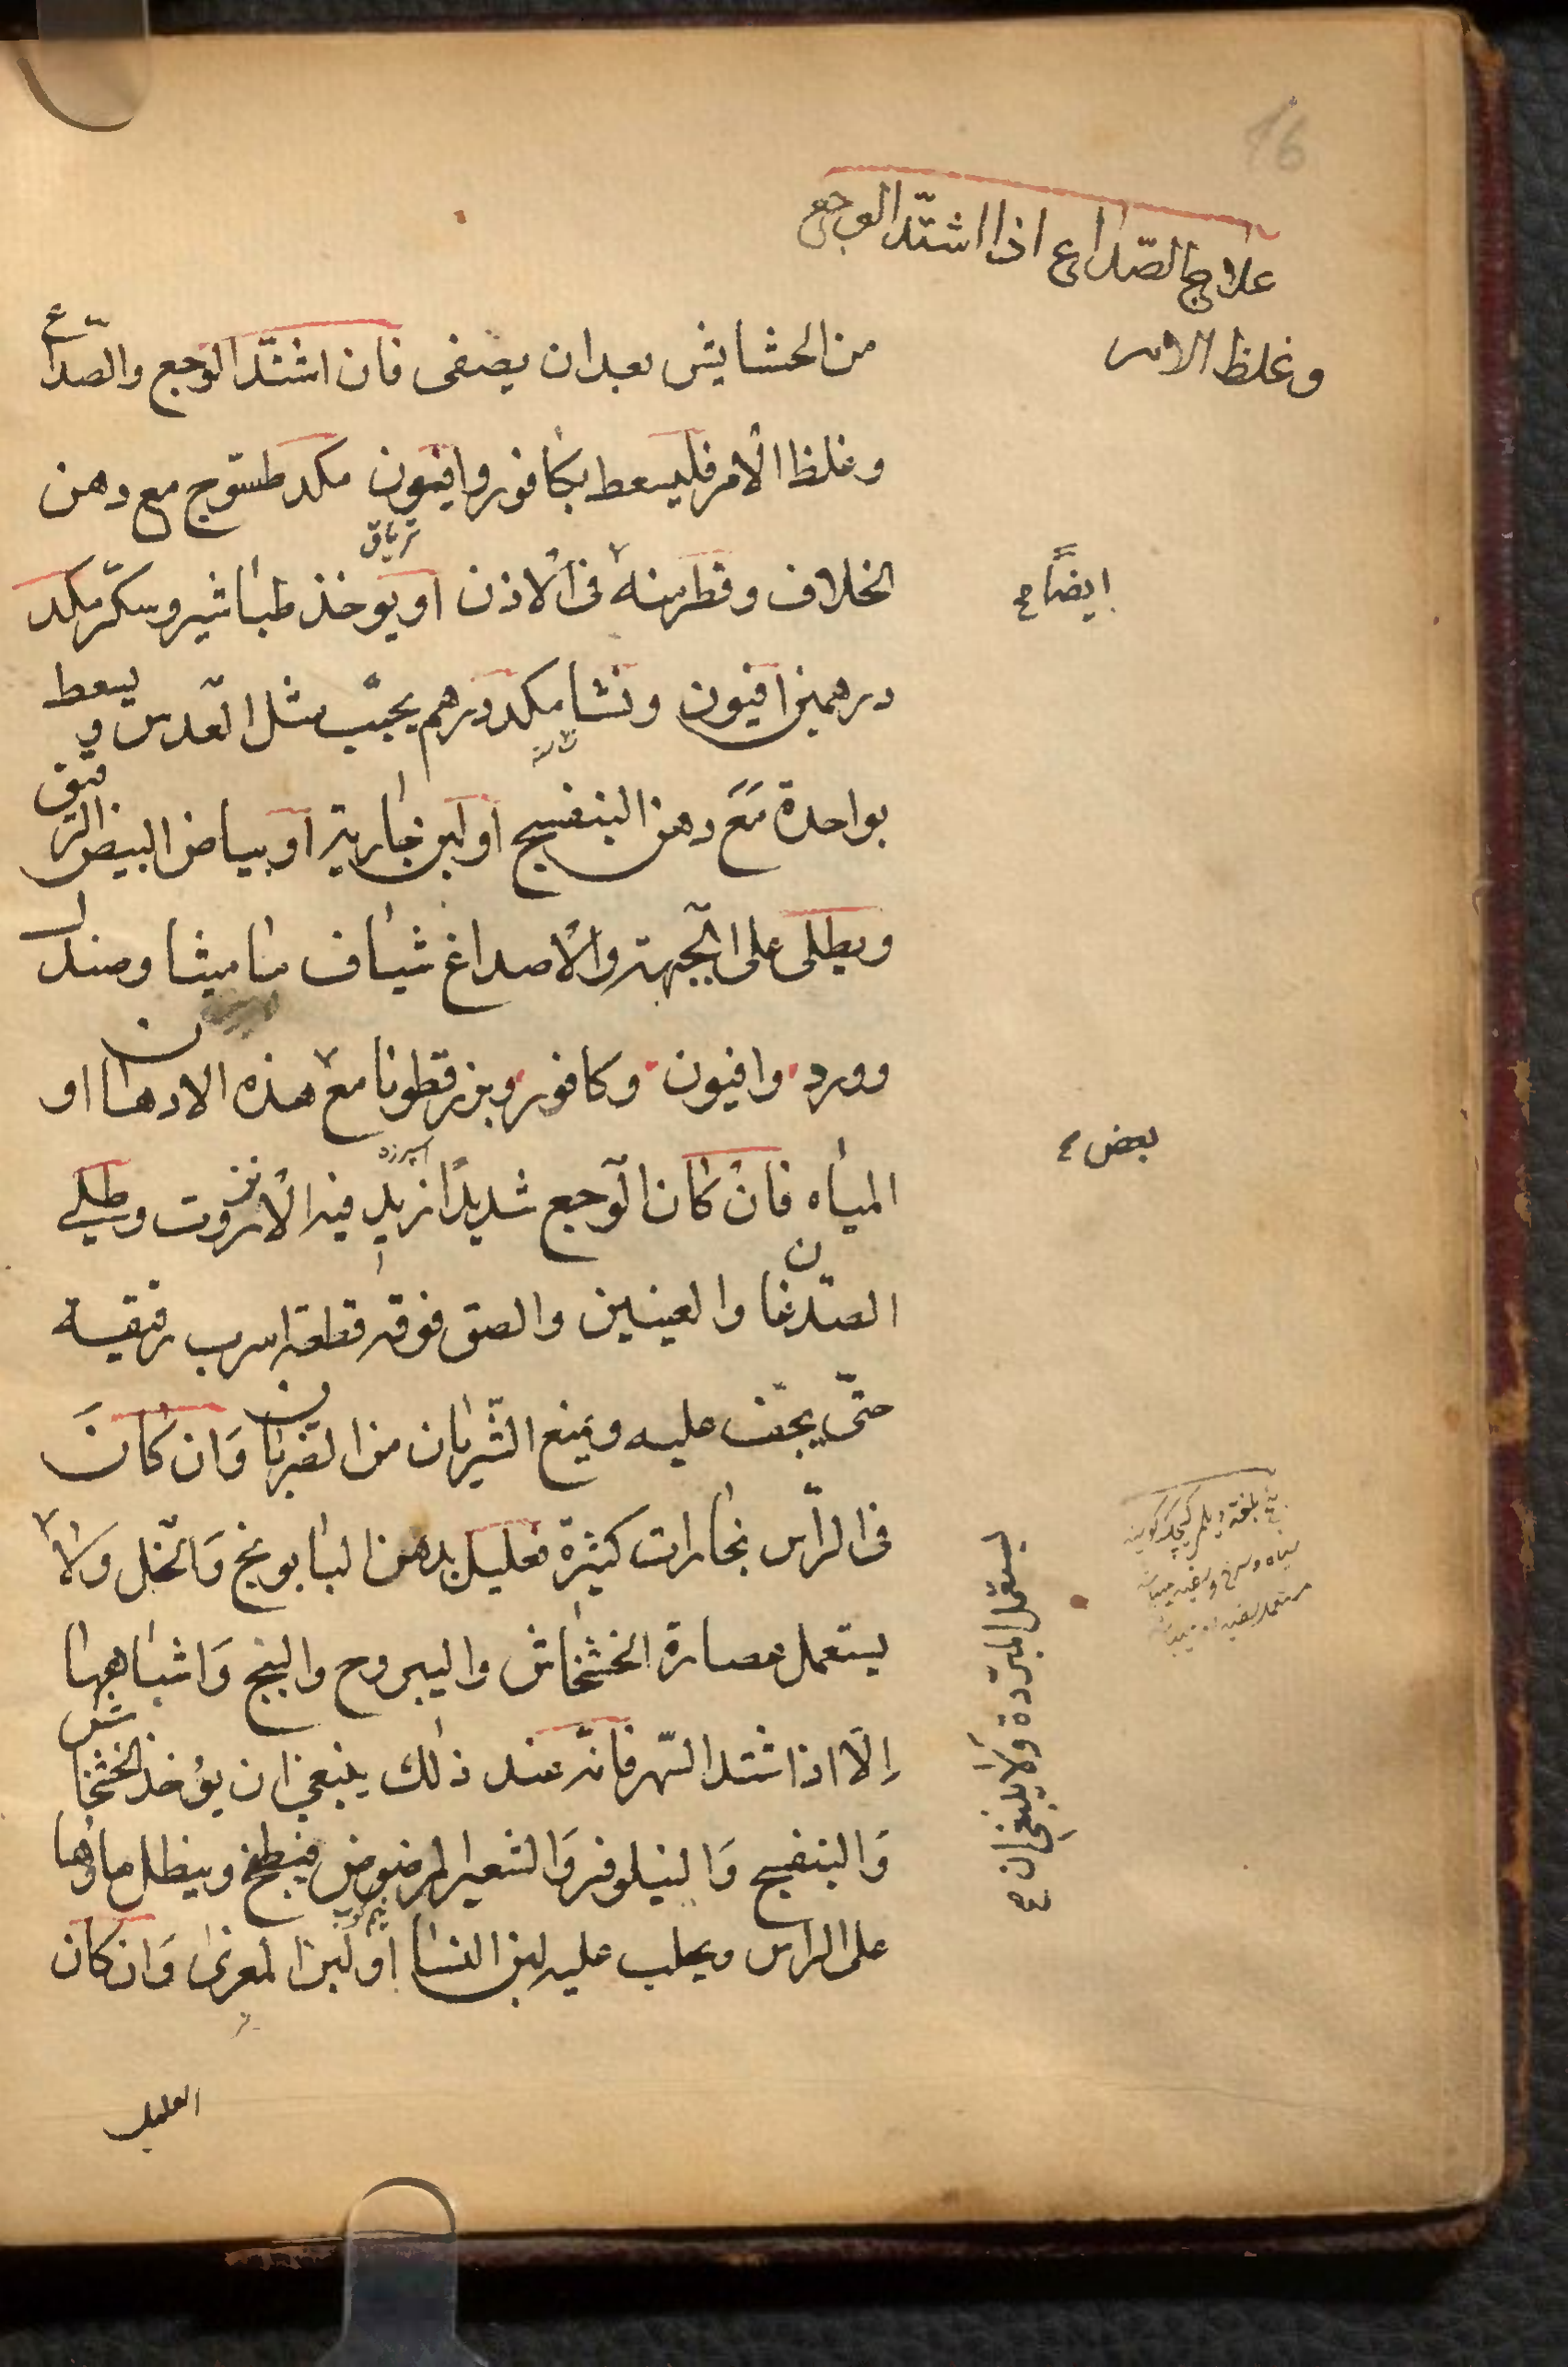 16
علاج الصّداع اذا اشتدّ الوجع
وغلظ الامر
من الحشايش بعد ان يصفى فان اشتدّ الوجع والصّداع
وغلظ الامر فليسعط بكافور وافيون مكد طسّوج مع دهن
ترياق
الخلاف وقطر منه في الاذن او يوخذ طباشير وسكّر مكد
ايضاً
درهمين افيون ونشا مكد درهم يحبّب مثل العدس و يسعط
بواحدة مَعَ دهن البنفسج او لبن جارية او بياض البيض الرّقيق
ويطلى على الجبهة والاصداغ شياف ماميثا وصندل
وورد وافيون وكافور وبزرقطونا مع هذه الادهان او
بعض
المياه فان كان الوجع شديدًا زيد فيه الانزروت وطلي
الصّدغان والعينين والصق فوقه قطعة اسرب رقيقة
حتّى يجفّ عليه ويمنع الشّريان من الضّربان وَان كانَ
في الرّاس بخارات كثيرة فعليك بدهن البابونج وَالخل وَلا
يستعمل المبرّدة وَلا ينبغي ان
يستعمل عصارة الخشخاش واليبروح والبنج وَاشباهها
الّا اذا اشتد السّهر فانّه عند ذلك ينبغي ان يؤخذ الخشخاش
وَالبنفسج وَالنيلوفر وَالشعير المرضوض فيطبخ وينطل ماؤها
على الراس ويحلب عليه لبن النسا او لبن المعزى وَان كان
العليل